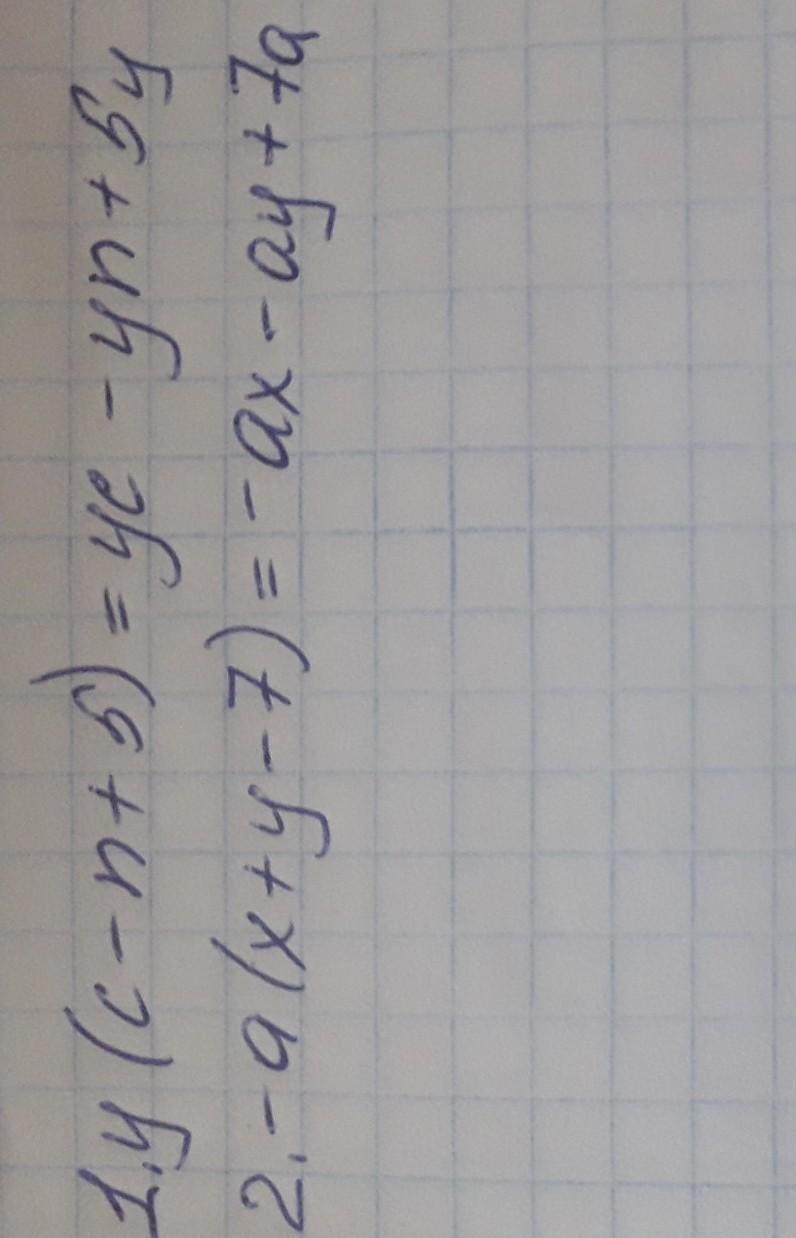 1. y (c - n + 5) = yc - yn + 5y
2. - a (x + y - 7) = - ax - ay + 7a